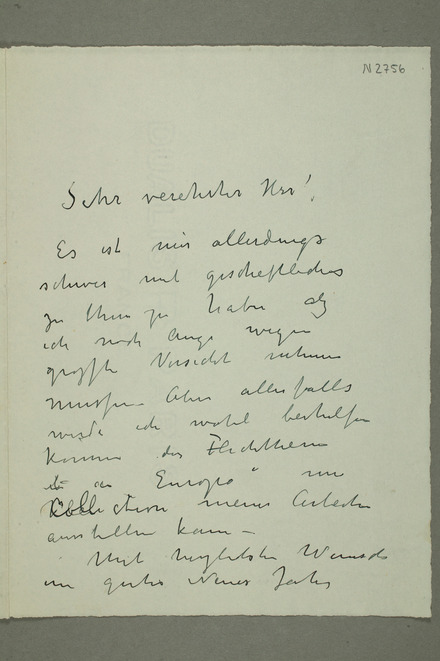 N2756
Sehr verehrter Herr!
Es ist mir allerdings
schwer mit geschäftliches
zu thun zu haben
ich noch lange wegen
grosste Vorsicht nehmen
mussen. Aber allesfalls
werde ich wohl
kommen das Flechtheim
in Europa"
Collection meiner Arbeiten
ausstellen kann –
Mit herzlichsten Wunsch
um gutes Neues Jahr